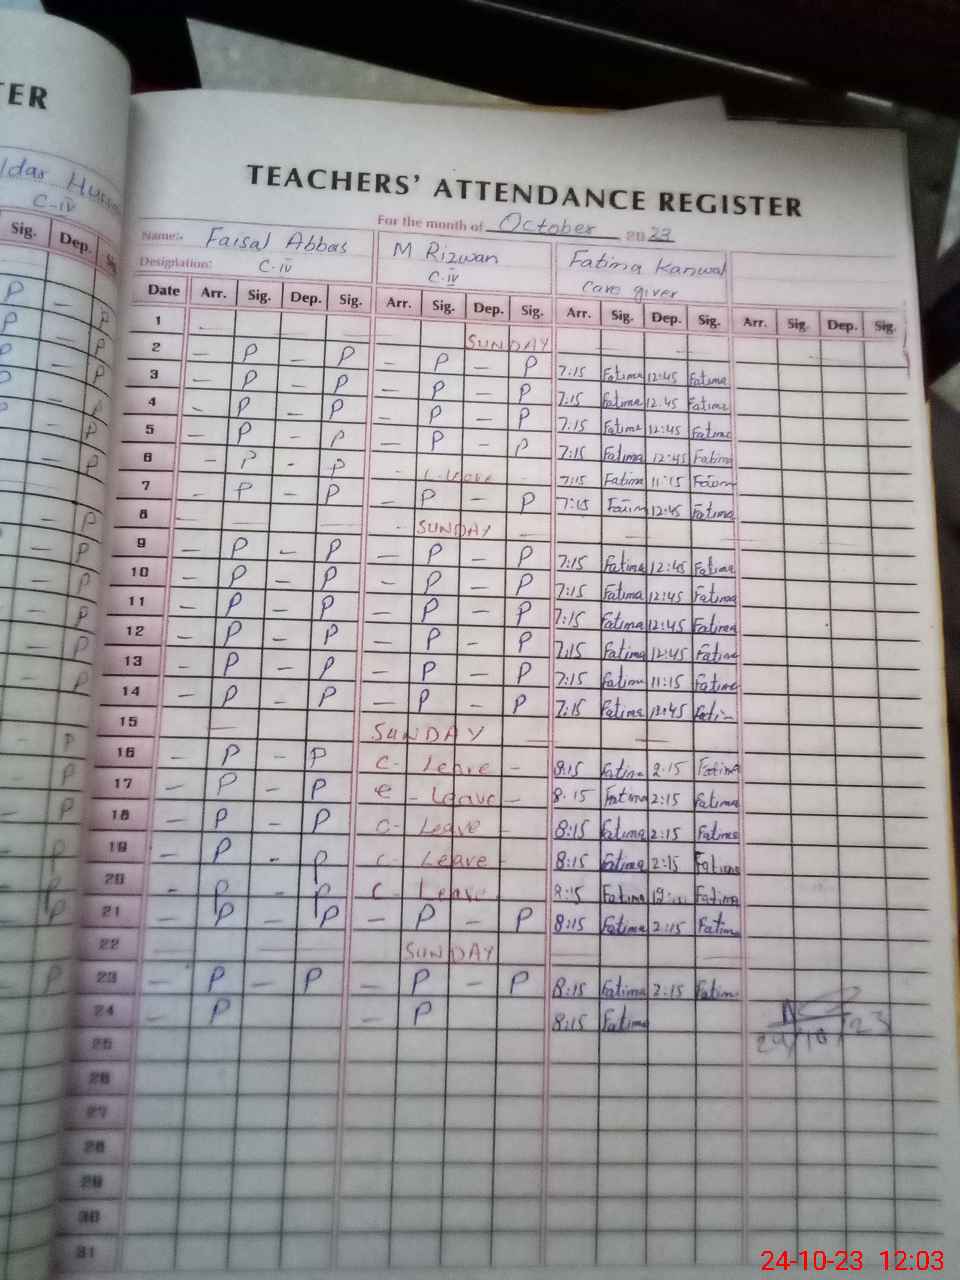 TER
C-IV
Sig. Dep.
TEACHERS' ATTENDANCE REGISTER
For the month of October 2023
Name:- Faisal Abbas M Rizwan Fatima Kanwal
Designation: C-IV C-IV Care giver
Date Arr. Sig. Dep. Sig. Arr. Sig. Dep. Sig. Arr. Sig. Dep. Sig. Arr. Sig. Dep. Sig.
1 SUNDAY
2 – P – P – P – P 7:15 Fatima 12:45 Fatima
3 – P – P – P – P 7:15 Fatima 12:45 Fatima
4 – P – P – P – P 7:15 Fatima 12:45 Fatima
5 – P – P – P – P 7:15 Fatima 12:45 Fatima
6 – P – P – Leave – 7:15 Fatima 11:15
7 – P – P – P – P 7:15 12:45 Fatima
8 – SUNDAY
9 – P – P – P – P 7:15 Fatima 12:45 Fatima
10 – P – P – P – P 7:15 Fatima 12:45 Fatima
11 – P – P – P – P 7:15 Fatima 12:45 Fatima
12 – P – P – P – P 7:15 Fatima 12:45 Fatima
13 – P – P – P – P 7:15 Fatima 11:15 Fatima
14 – P – P – P – P 7:15 Fatima 12:45
15 SUNDAY
16 P – P C- Leave – 8:15 Fatima 2:15 Fatima
17 – P – P – Leave – 8:15 Fatima 2:15 Fatima
18 – P – P C- Leave – 8:15 Fatima 2:15 Fatima
19 – P – P C- Leave – 8:15 Fatima 2:15 Fatima
20 – P – P C- Leave 8:15 Fatima Fatima
21 – P – P – P – P 8:15 Fatima 2:15 Fatim
22 SUNDAY
23 – P – P – P – P 8:15 Fatima 2:15 Fatim
24 – P – P 8:15 Fatima
24/10/23
25
26
27
28
29
30
31
24-10-23 12:03